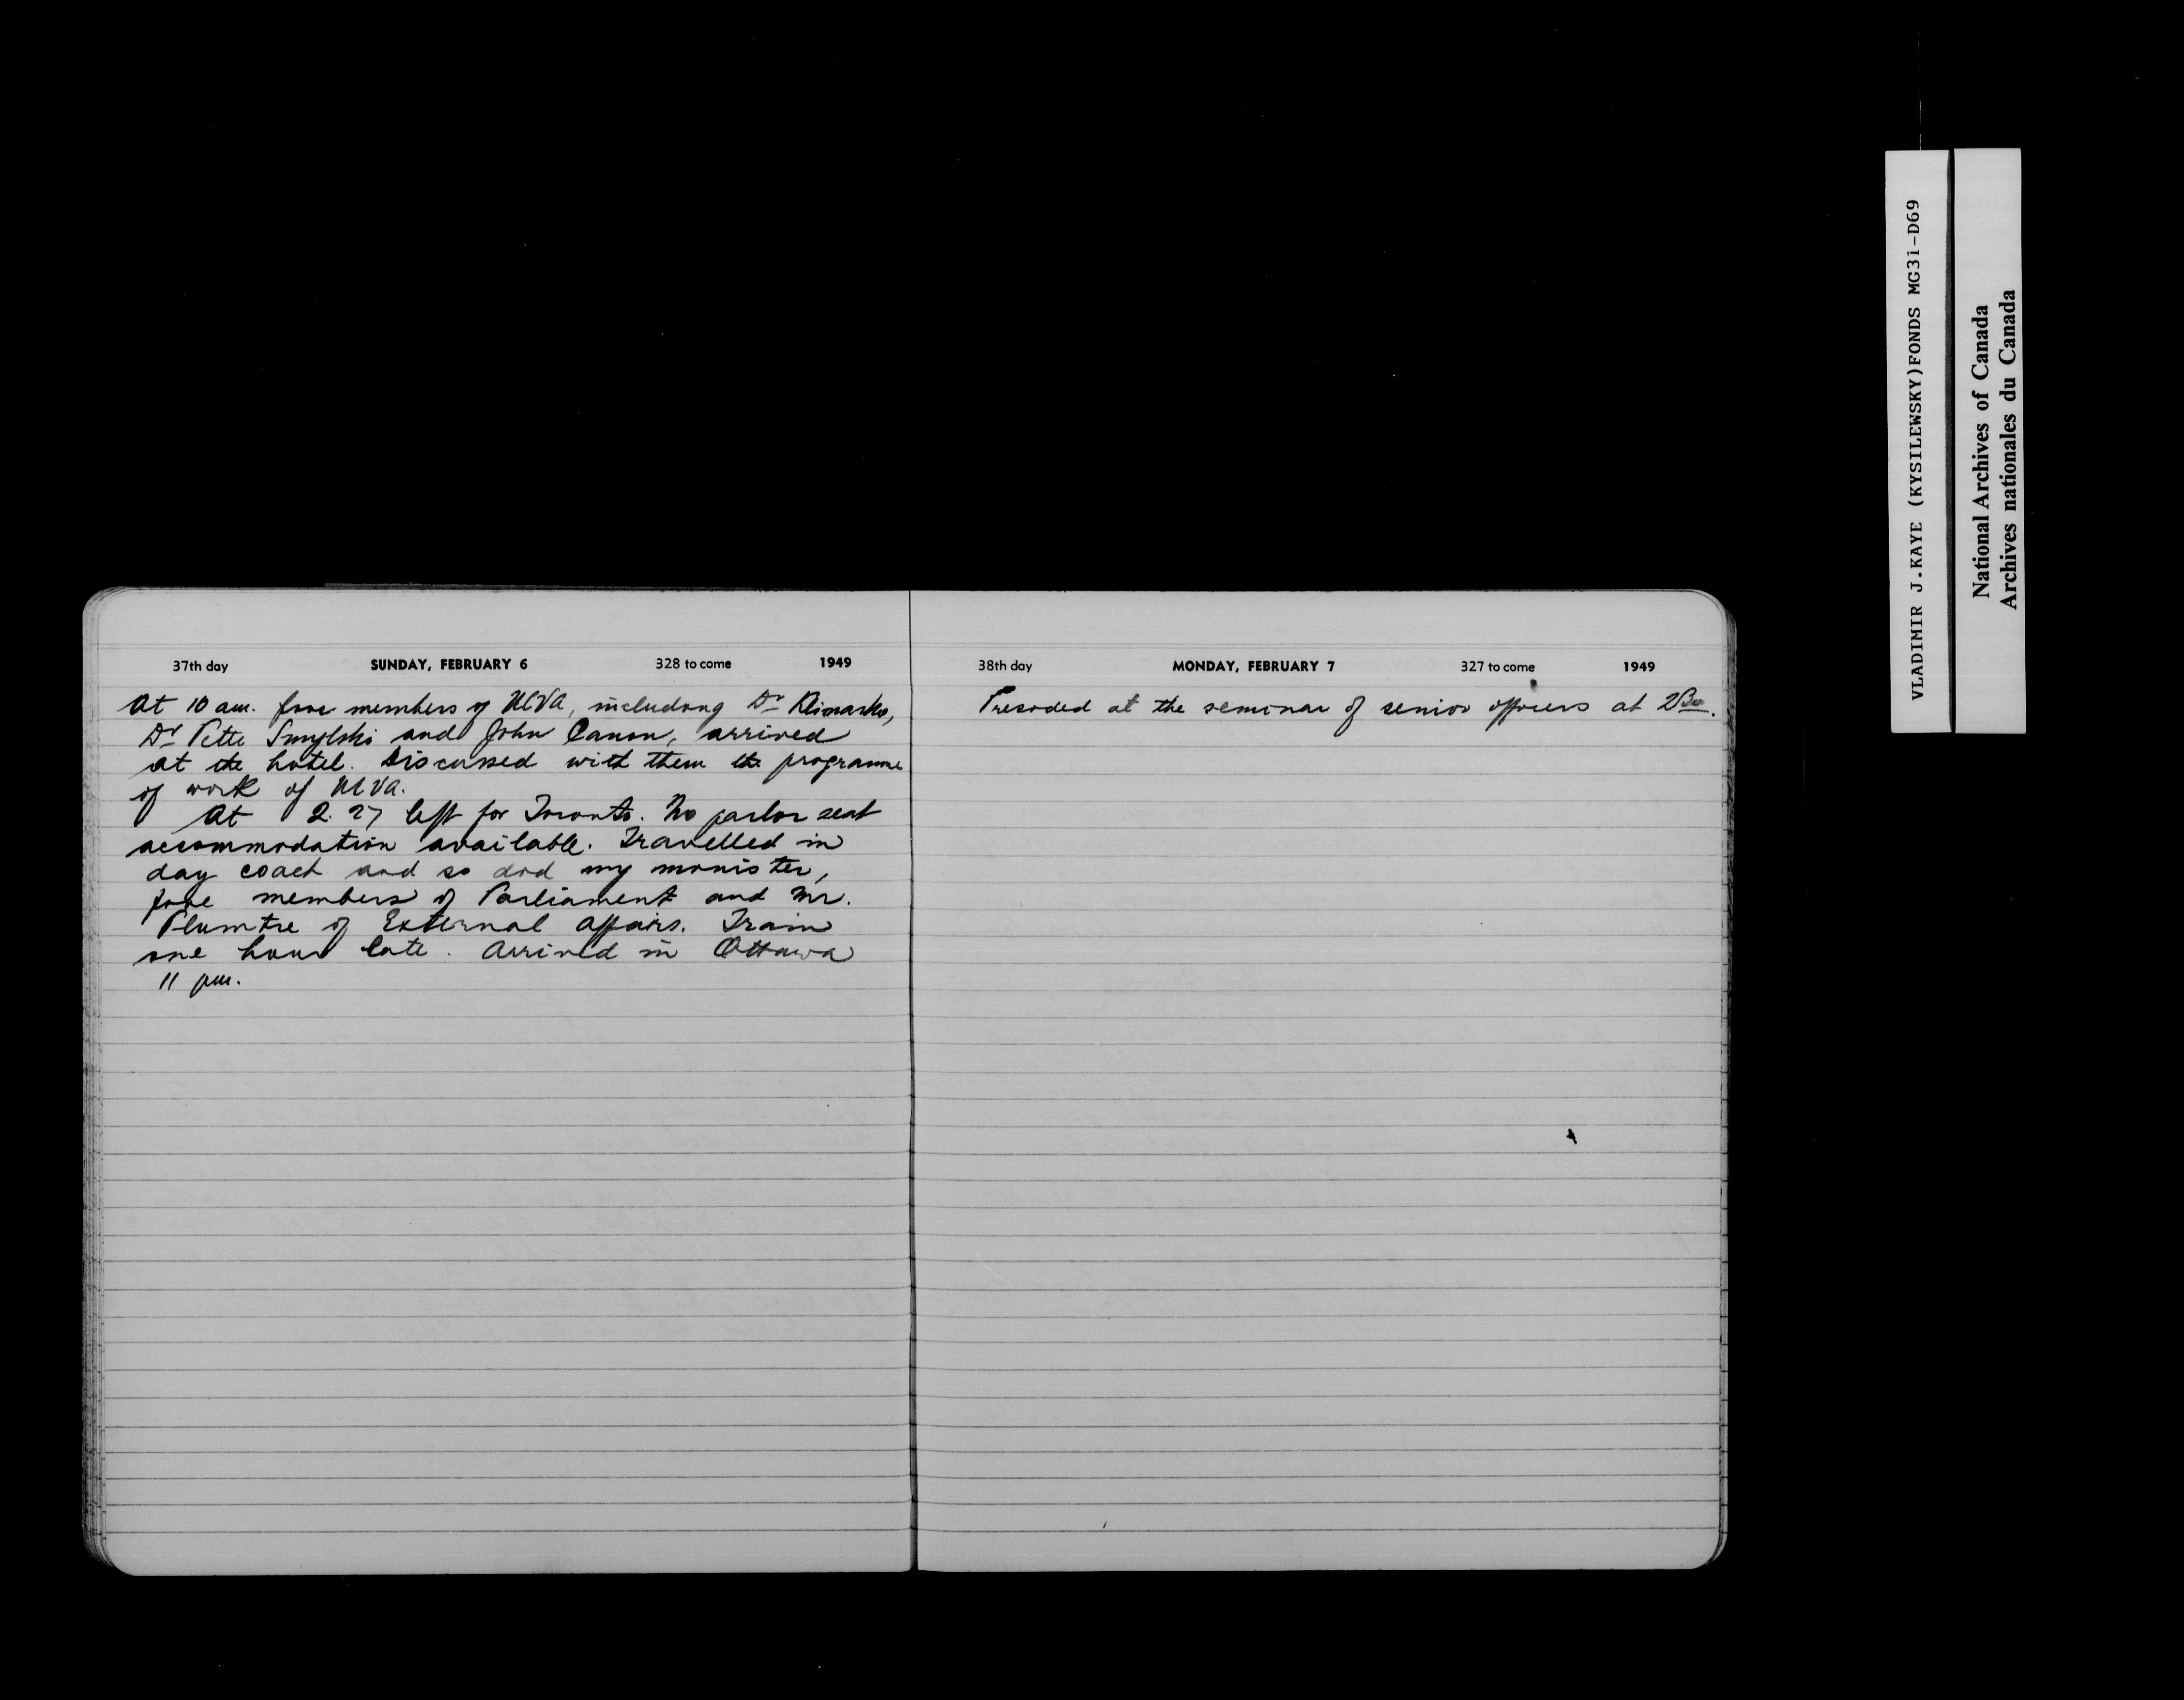 37th day SUNDAY, FEBRUARY 6 328 to come 1949
At 10 am. five members of UCVA, including Dr Klimasko,
Dr Pette Smylski and John Canon, arrived
at the hotel. Discussed with them the programe
of work of UCVA.
At 2.27 left for Toronto. No parlor seat
accommodation available. Travelled in
day coach and so did my minister,
five members of Parliament and Mr.
Plumtre of External Affairs. Train
one hour late. Arrived in Ottawa
11 pm.
38th day MONDAY, FEBRUARY 7 327 to come 1949
Presided at the seminar of senior officers at 2 30.
VLADIMIR J.KAYE (KYSILEWSKY)FONDS MG3i-D69
National Archives of Canada
Archives nationales du Canada